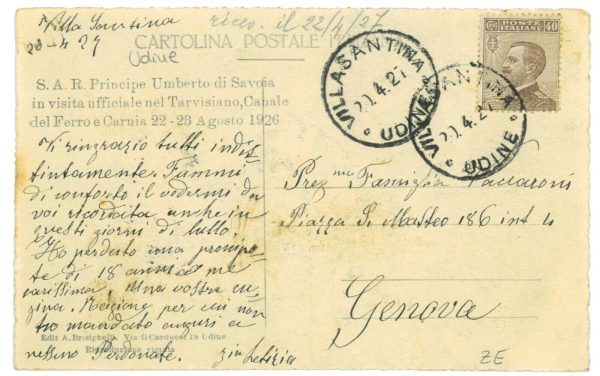 Villa Santina
20-4 27
ricev. il 22/4/27
CARTOLINA POSTALE
Udine
S. A. R. Principe Umberto di Savoia
in visita ufficiale nel Tarvisiano, Canale
del Ferro e Carnia 22 - 23 Agosto 1926
Vi ringrazio tutti indis
tintamente. Fummi
di conforto il vedermi da
voi ricordata anche in
questi giorni di lutto.
Ho perduto una pronipo
te di 18 anni a me
carissima. Una vostra cu
gina. Ragione per cui non
ho mandato auguri a
nessuno Perdonate.
zia Letizia
Edit A. Brisighelli. Via G Carducci 18 Udine
Riproduzione vietata
VILLASANTINA
20.4.27
UDINE
VILLASANTINA
20.4.27
UDINE
POSTE
ITALIANE
40
Prez ma Famiglia Vaccaroni
Piazza S. Matteo 186 int 4
Genova
ZE